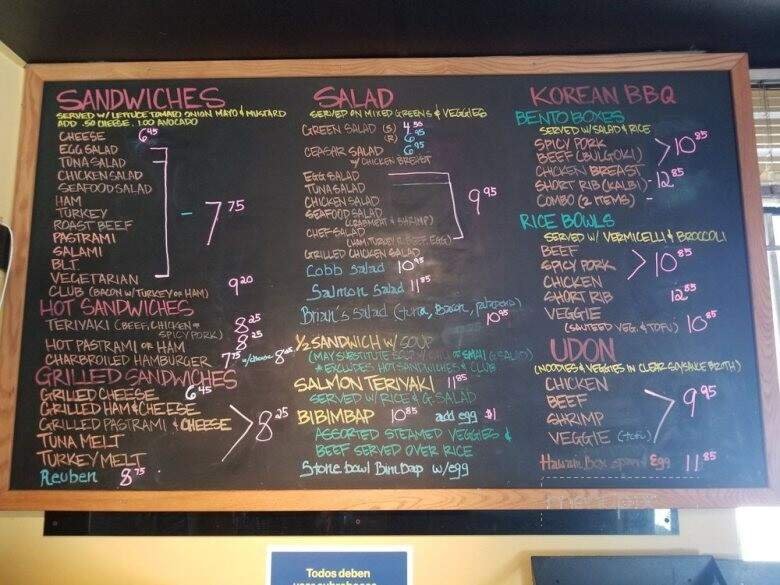 SANDWICHES
SERVED W/ LETTUCE TOMATO ONION MAYO & MUSTARD
ADD .50 CHEESE 1.00 AVOCADO
CHEESE 6.45
EGG SALAD
TUNA SALAD
CHICKEN SALAD
SEAFOOD SALAD
HAM
TURKEY - 7.75
ROAST BEEF
PASTRAMI
SALAMI
BLT
VEGETARIAN
CLUB (BACON W/ TURKEY OR HAM) 9.20
HOT SANDWICHES
TERIYAKI (BEEF, CHICKEN OR SPICY PORK) 8.25
HOT PASTRAMI OR HAM 8.25
CHARBROILED HAMBURGER 7.75 w/ cheese
GRILLED SANDWICHES
GRILLED CHEESE 6.45
GRILLED HAM & CHEESE
GRILLED PASTRAMI & CHEESE > 8.25
TUNA MELT
TURKEY MELT
Reuben 8.75
SALAD
SERVED ON MIXED GREENS & VEGGIES
GREEN SALAD (S) 4.50
(R) 6.95
CEASAR SALAD 6.95
W/ CHICKEN BREAST
EGG SALAD
TUNA SALAD
CHICKEN SALAD 9.95
SEAFOOD SALAD
(CRABMEAT & SHRIMP)
CHEF SALAD
(HAM, TURKEY, R. BEEF, EGG)
GRILLED CHICKEN SALAD
Cobb Salad 10.95
Salmon Salad 11.85
Brian's Salad (tuna, Bacon, Jalapeno) 10.95
1/2 SANDWICH W/ SOUP
(MAY SUBSTITUTE SOUP W/ OR SMALL G. SALAD)
* EXCLUDES HOT SANDWICHES & CLUB
SALMON TERIYAKI 11.85
SERVED W/ RICE & G. SALAD
BIBIMBAP 10.85 add egg $1
ASSORTED STEAMED VEGGIES &
BEEF SERVED OVER RICE
Stone bowl BimBap w/egg
KOREAN BBQ
BENTO BOXES
SERVED W/ SALAD & RICE
SPICY PORK
BEEF (BULGOKI) > 10.85
CHICKEN BREAST
SHORT RIB (KALBI) - 12.85
COMBO (2 ITEMS) -
RICE BOWLS
SERVED W/ VERMICELLI & BROCCOLI
BEEF
SPICY PORK > 10.85
CHICKEN
SHORT RIB 12.85
VEGGIE 10.85
(SAUTEED VEG. & TOFU)
UDON
(NOODLES & VEGGIES IN CLEAR SOY SAUCE BROTH)
CHICKEN
BEEF > 9.95
SHRIMP
VEGGIE (tofu)
Hawaii Box spam Egg 11.85
Todos deben